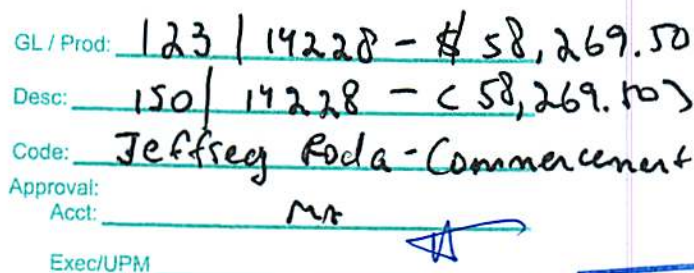 GL / Prod: 123 | 14228 - $ 58,269.50
Desc: 150 | 14228 - < 58,269.50>
Code: Jeffrey Roda - Commencement
Approval:
Acct: MA
Exec/UPM